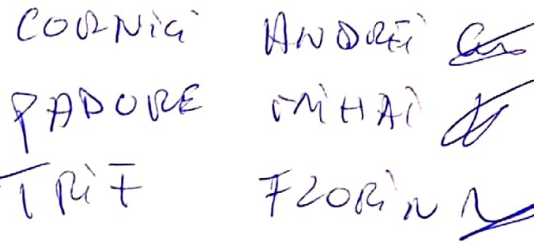 CORNICI ANDREI
PADURE MIHAI
TRIF FLORIN